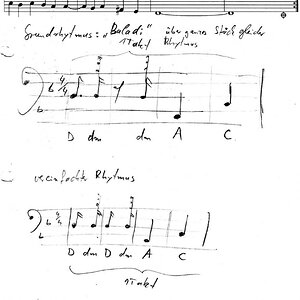 Grundrhytmus: „Baladi" über ganzes Stück gleicher
1Takt Rhytmus
4/4
D dm dm A C
vereinfachter Rhytmus
4/4
D dm D dm A C
1Takt